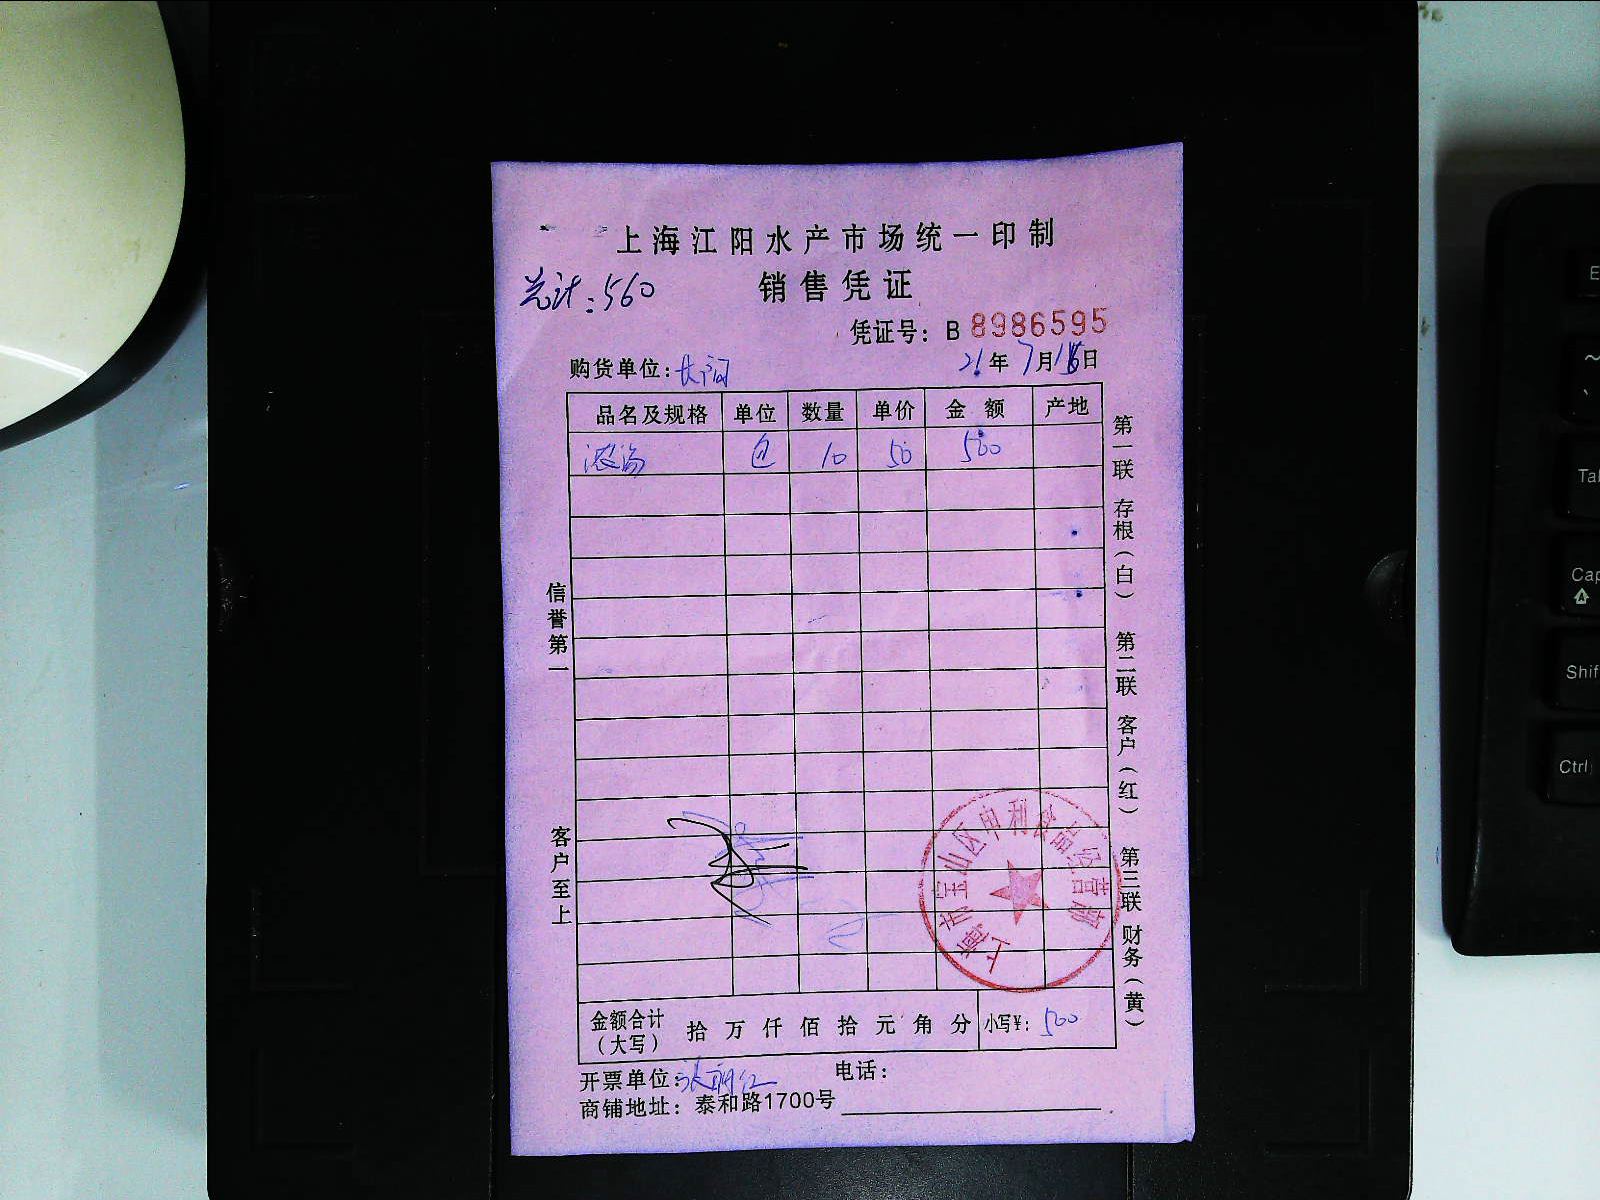 上海江阳水产市场统一印制
总计:560
销售凭证
凭证号: B 8986595
购货单位:
21年7月日
品名及规格 单位 数量 单价 金额 产地
浓汤 包 10 50 500
信誉第一
客户至上
第一联 存根(白) 第二联 客户(红) 第三联 财务(黄)
金额合计(大写) 拾万仟佰拾元角分 小写¥: 500
开票单位:张丽红
电话:
商铺地址: 泰和路1700号
E
~
`
Tab
Cap
Shif
Ctrl